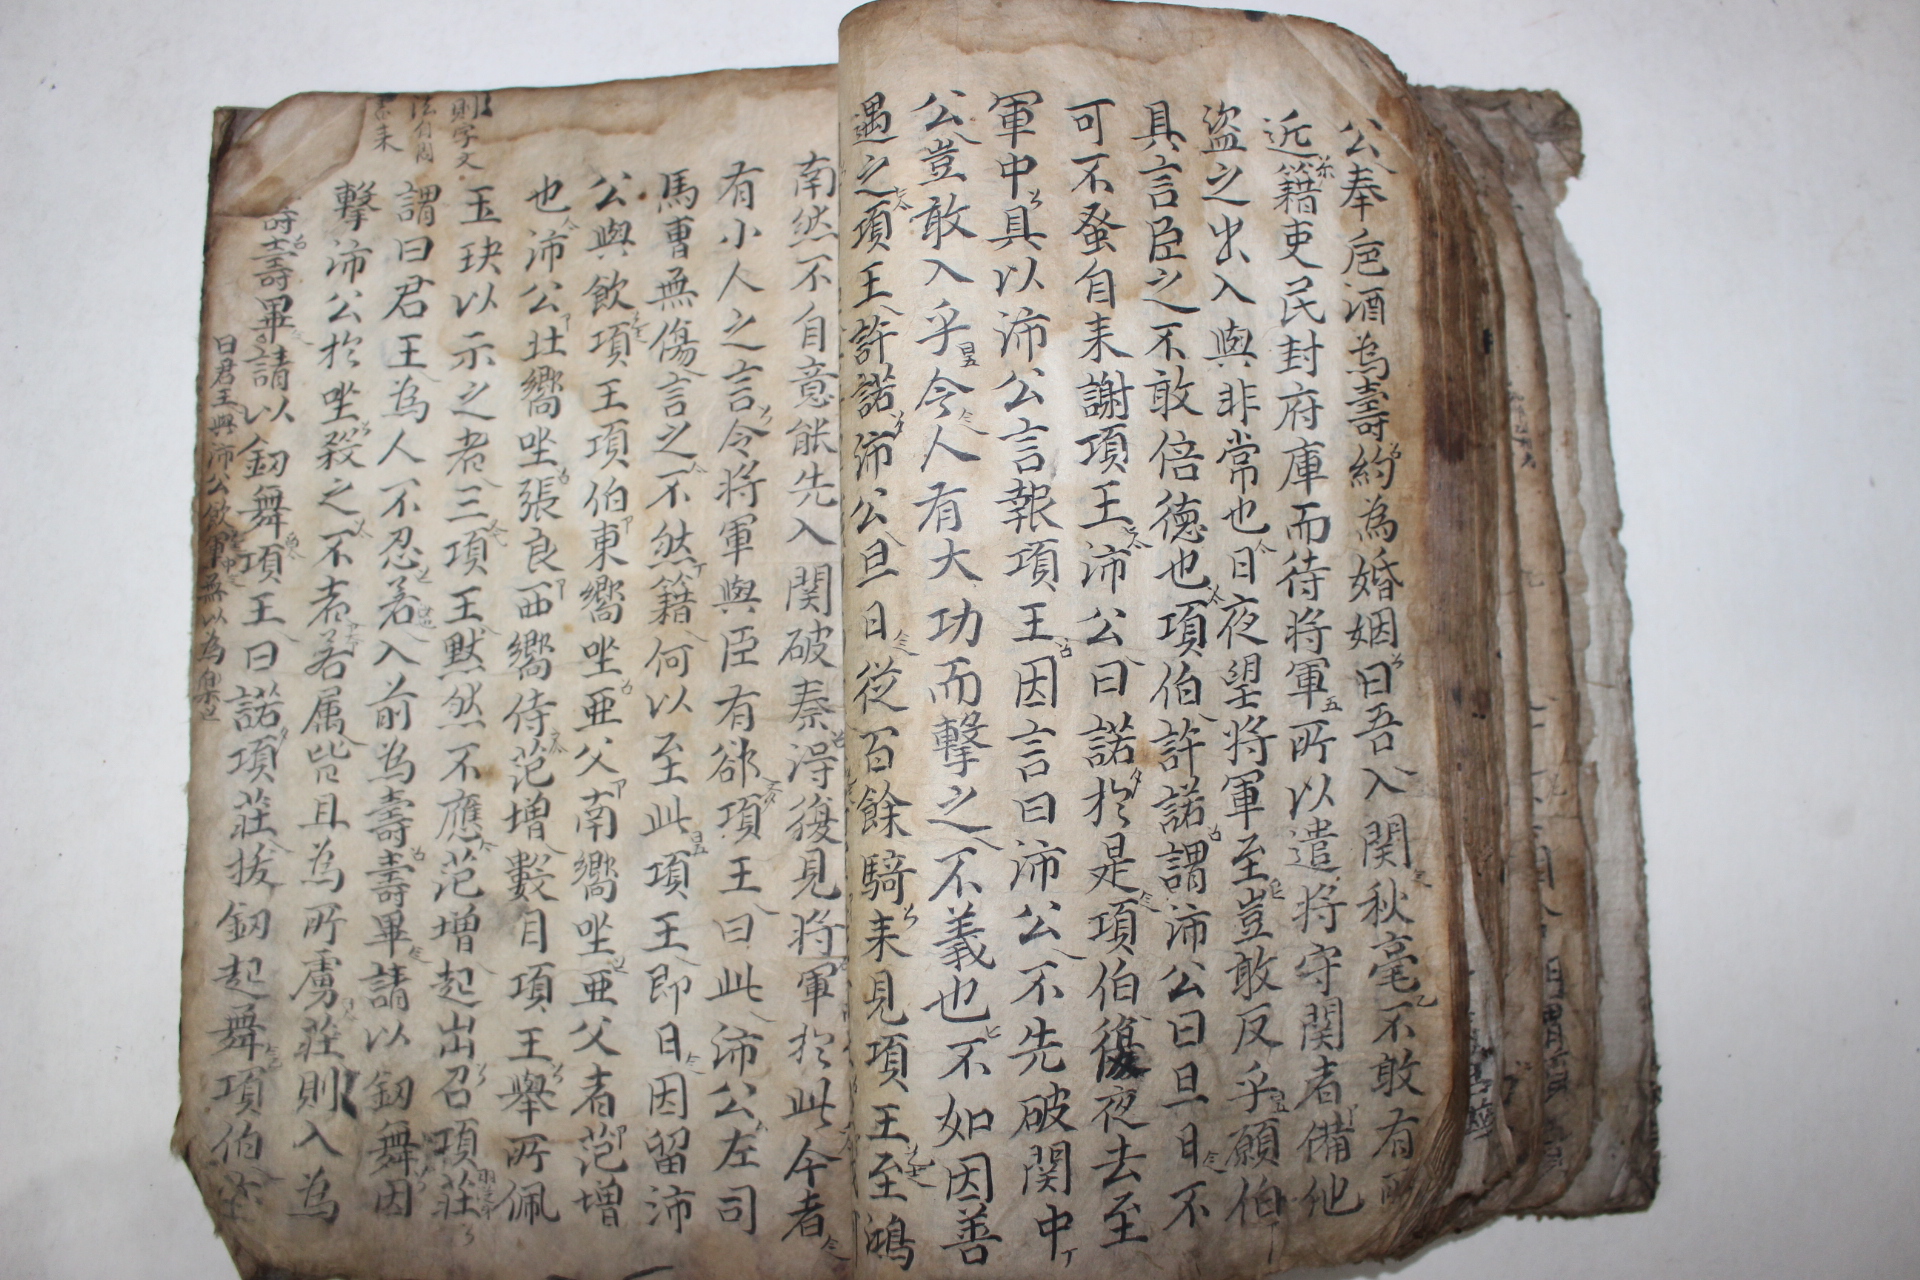 公奉卮酒為壽約為婚姻曰吾入関秋毫不敢有所
近籍吏民封府庫而待將軍所以遣將守関者備他
盜之出入與非常也日夜望將軍至豈敢反乎願伯
具言臣之不敢倍德也項伯許諾謂沛公曰旦日不
可不蚤自来謝項王沛公曰諾於是項伯復夜去至
軍中具以沛公言報項王因言曰沛公不先破関中
公豈敢入乎今人有大功而擊之不義也不如因善
遇之項王許諾沛公旦日從百餘騎来見項王至鴻
南然不自意能先入関破秦得復見將軍於此今者
有小人之言令將軍與臣有郤項王曰此沛公左司
馬曹無傷言之不然籍何以至此項王即日因留沛
公與飲項王項伯東嚮坐亜父南嚮坐亜父者范增
也沛公北嚮坐張良西嚮侍范增數目項王舉所佩
玉玦以示之者三項王默然不應范增起出召項莊
謂曰君王為人不忍若入前為壽壽畢請以釰舞因
擊沛公於坐殺之不者若属皆且為所虜莊則入為
壽壽畢請以釰舞項王曰諾項莊拔釰起舞項伯
曰君王與沛公飲軍中無以為樂
則字文